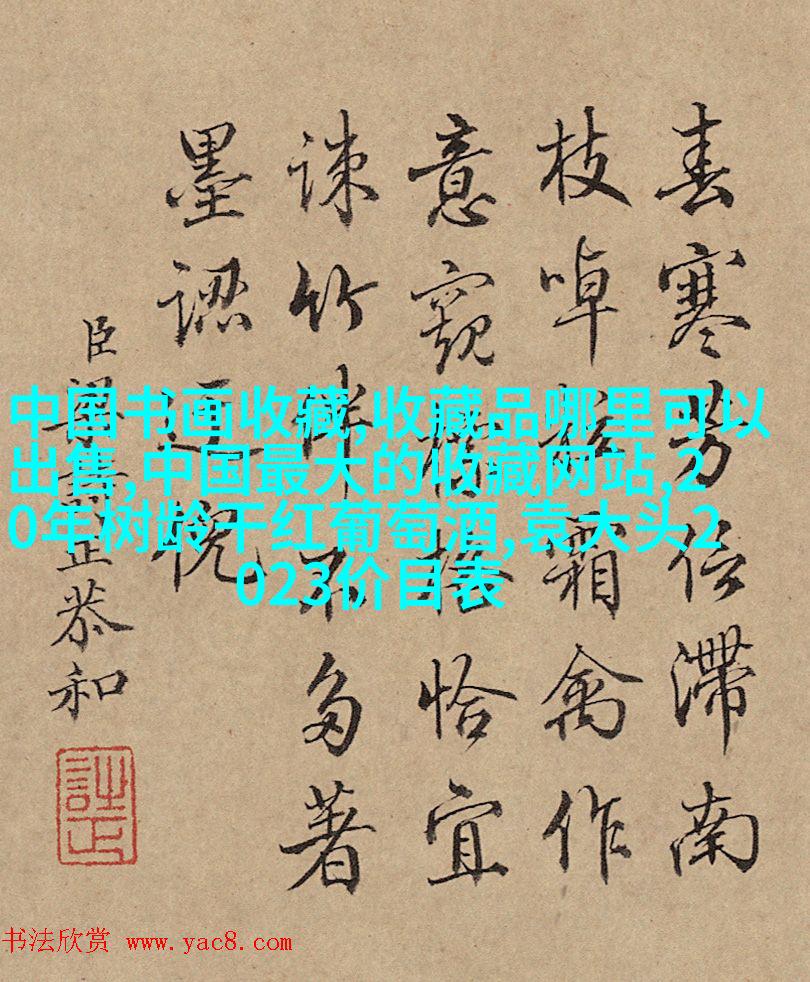 春寒芳信滯南
枝啅霜禽作
意窺標格恰宜
竹伴不多著
墨
臣梁詩正恭和
詩正
中国书画收藏,收藏品哪里可以
出售,中国最大的收藏网站,2
0年树龄干红葡萄酒,袁大头2
023价目表
书法欣赏 www.yac8.com